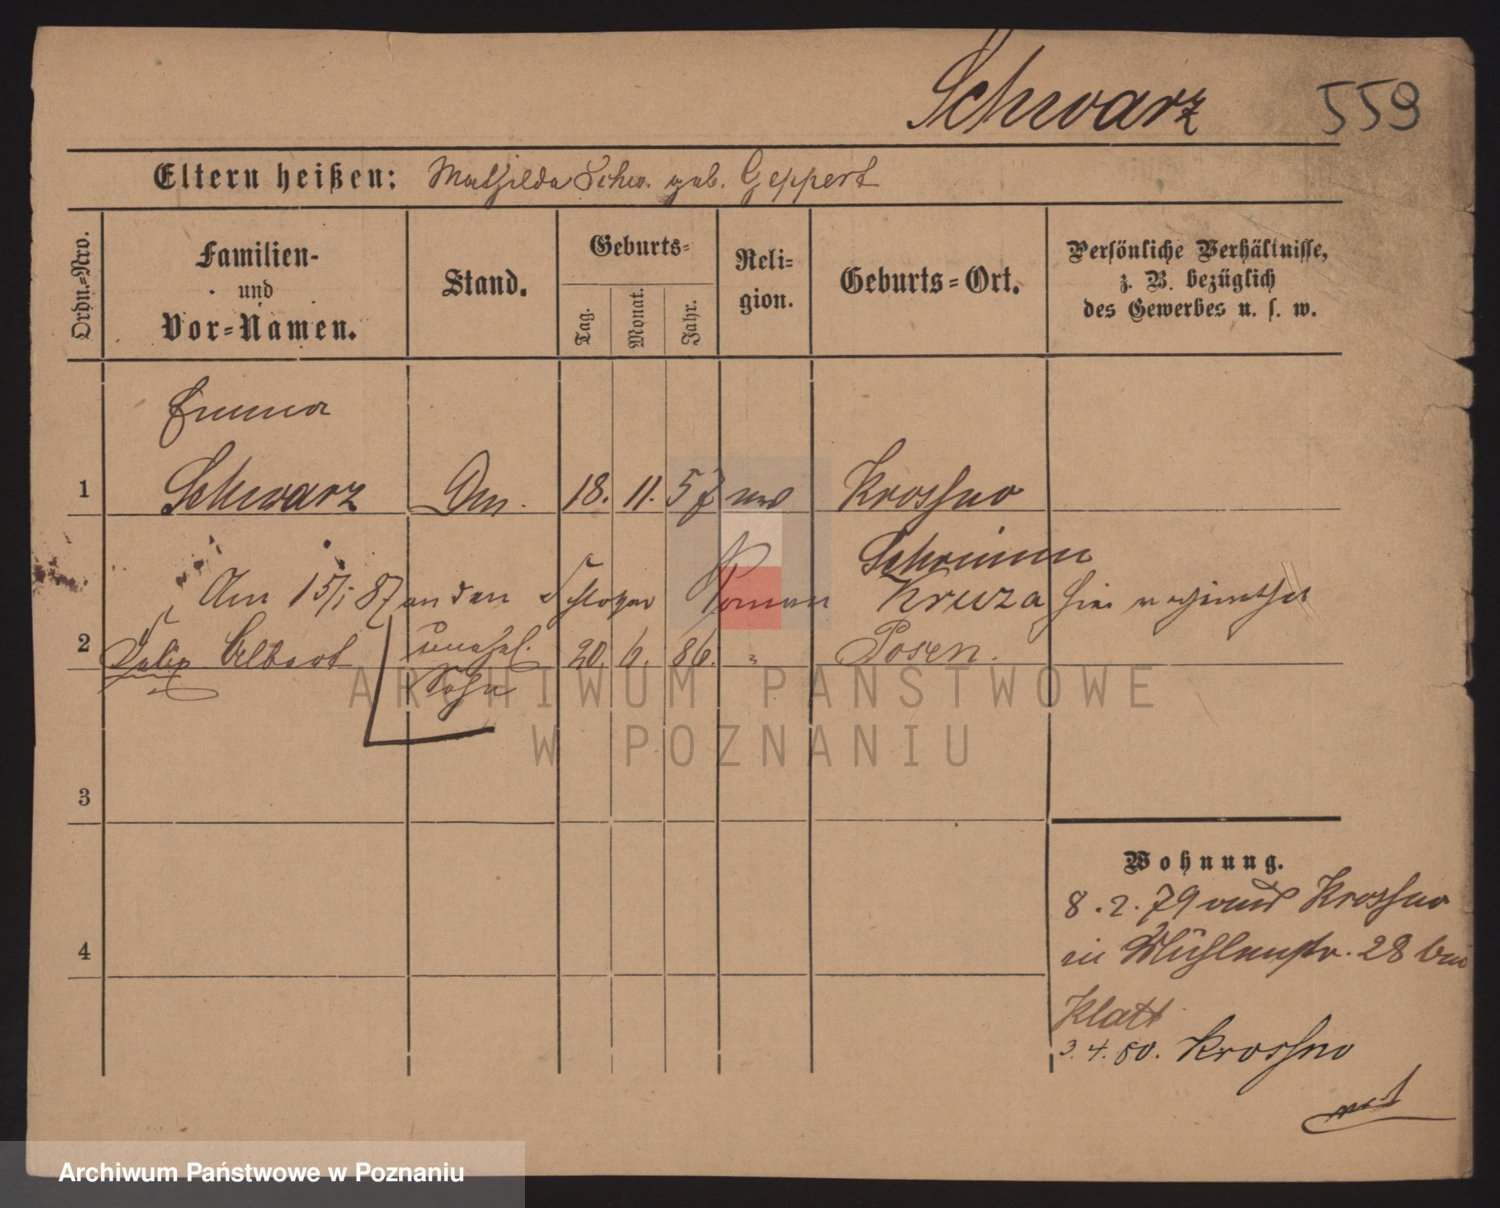 Schwarz 559
Eltern heißen: Mathilda Schw. geb. Geppert
Ordn.-Nro.
Familien-
und
Vor-Namen.
Stand.
Geburts-
Tag.
Monat.
Jahr.
Reli-
gion.
Geburts-Ort.
Persönliche Verhältnisse,
z. B. bezüglich
des Gewerbes u. s. w.
Emma
1 Schwarz 18. 11. 57 Krosno
Schrimm
Am 15/1 87 an den Roman Kruza hier verheirathet
2 Felix Albert unehel. 20. 6. 86. " Posen.
Sohn
3
4
Wohnung.
8. 2. 79 aus Krosno
in Mühlenstr. 28 bei
Klatt
3. 4. 80. Krosno
ARCHIWUM PAŃSTWOWE
W POZNANIU
Archiwum Państwowe w Poznaniu